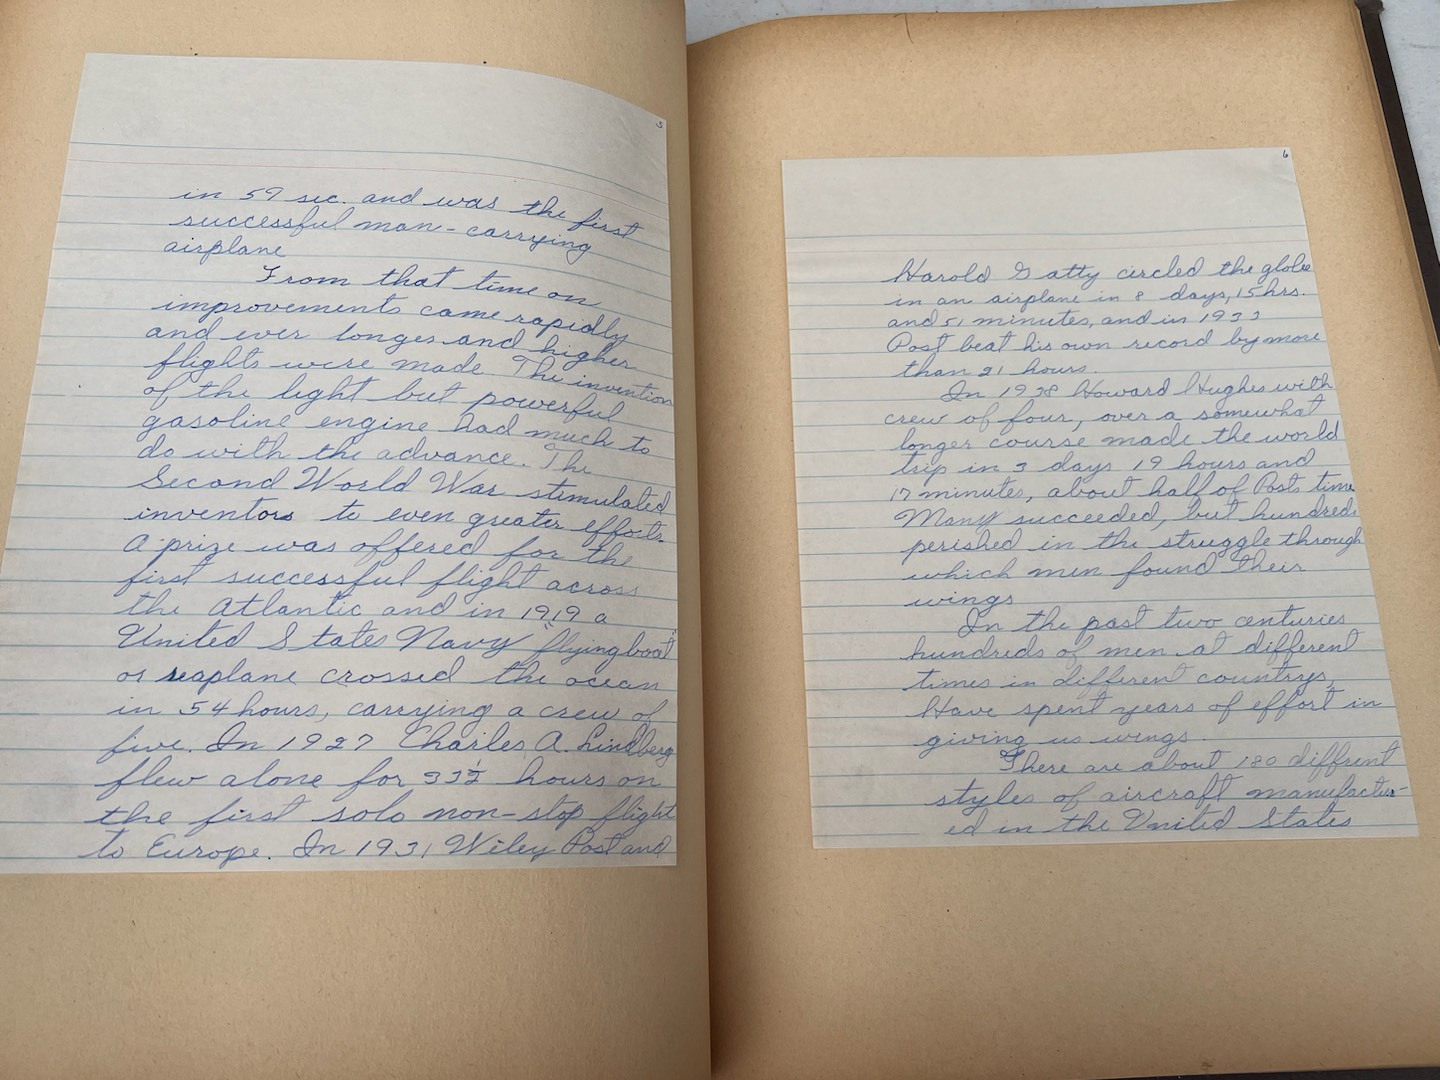 5
in 59 sec. and was the first
successful man-carrying
airplane
From that time on
improvements came rapidly
and ever longer and higher
flights were made. The invention
of the light but powerful
gasoline engine had much to
do with the advance. The
Second World War stimulated
inventors to even greater efforts.
A prize was offered for the
first successful flight across
the Atlantic and in 1919 a
United States Navy "flying boat"
or seaplane crossed the ocean
in 54 hours, carrying a crew of
five. In 1927 Charles A. Lindberg
flew alone for 33½ hours on
the first solo non-stop flight
to Europe. In 1931 Wiley Post and
6
Harold Gatty circled the globe
in an airplane in 8 days, 15 hrs.
and 51 minutes, and in 1933
Post beat his own record by more
than 21 hours.
In 1938 Howard Hughes with
crew of four, over a somewhat
longer course made the world
trip in 3 days 19 hours and
17 minutes, about half of Posts time
Many succeeded, but hundreds
perished in the struggle through
which men found their
wings
In the past two centuries
hundreds of men at different
times in different countrys,
have spent years of effort in
giving us wings.
There are about 180 diffrent
styles of aircraft manufactur-
ed in the United States